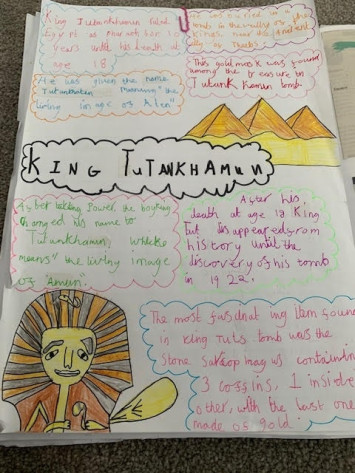 King Tutankhamun ruled
Egypt as pharaoh for 10
years until his death at
age 18
He was buried in a
tomb in the valley of the
Kings, near the
city of Thebes
He was given the name
Tutankhaten meaning "the
living image of Aten"
This gold mask was found
among the treasure in
Tutankhamun tomb.
KING TUTANKHAMUN
After taking Power, the boy king
changed his name to
Tutankhamun, which
means "the living image
of "Amun".
After his
death at age 18 King
tut disappeared from
history until the
discovery of his tomb
in 1922.
The most item found
in King Tuts tomb was the
Stone containing
3 coffins, 1 inside
other, with the last one
made of gold.